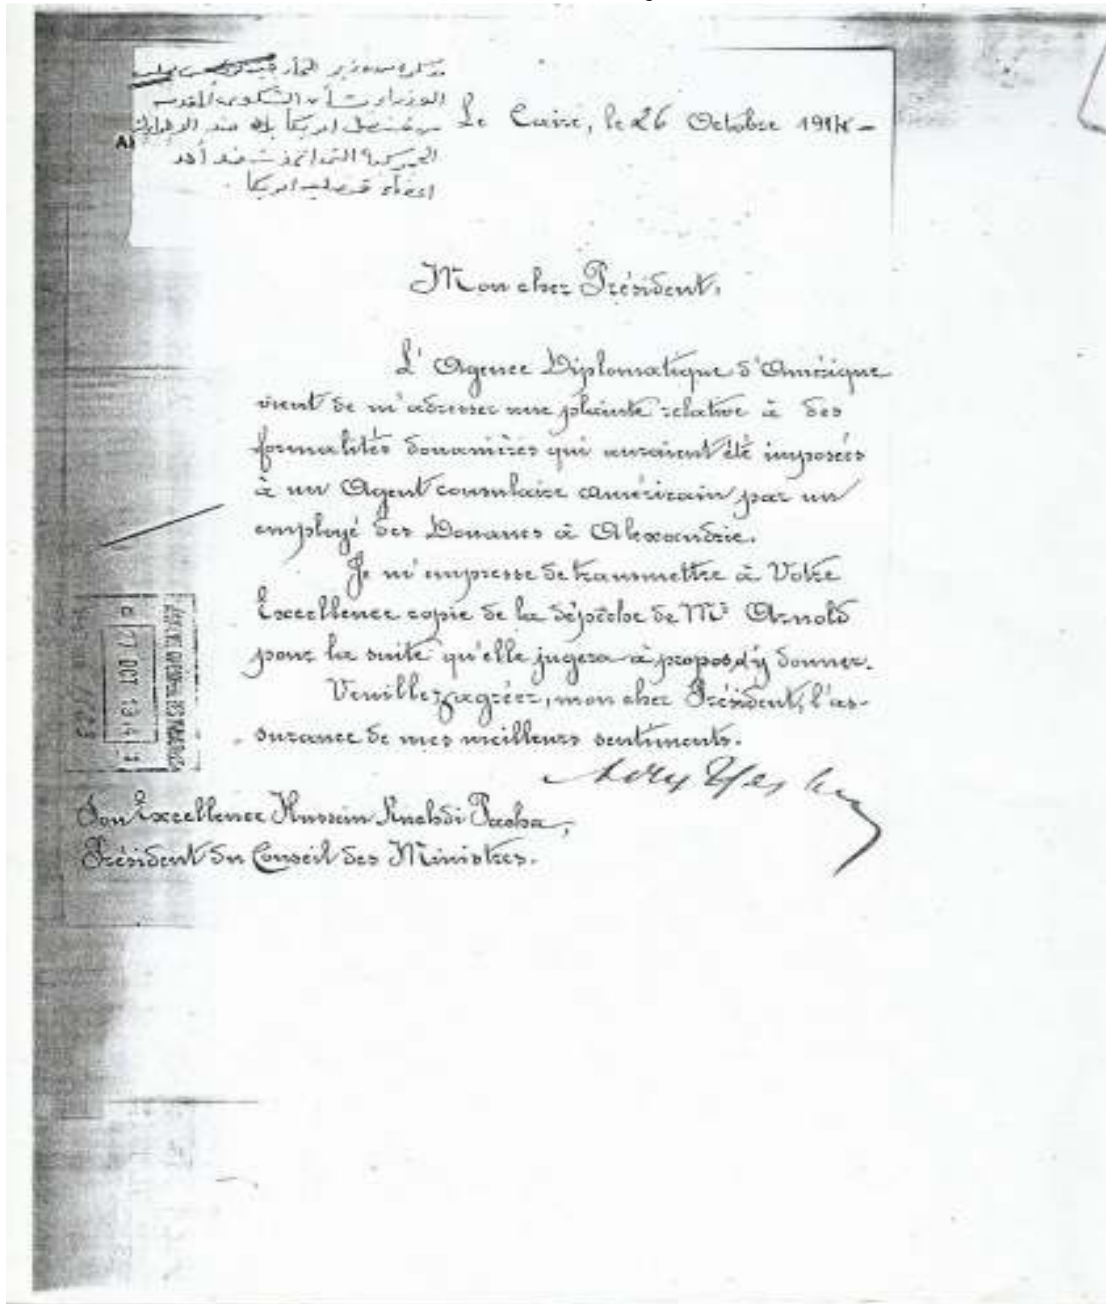 الوزراء بشأن الشكوى المقدمة
من قنصل امريكا
الجمركية التى اتخذت ضد أحد
امريكا
Le Caire, le 26 Octobre 1914 -
Mon cher Président,
L'Agence Diplomatique d'Amérique
vient de m'adresser une plainte relative à des
formalités douanières qui auraient été imposées
à un Agent consulaire américain par un
employé des Douanes à Alexandrie.
Je m'empresse de transmettre à Votre
Excellence copie de la dépêche de Mr Arnold
pour la suite qu'elle jugera à propos d'y donner.
Veuillez agréer, mon cher Président, l'as-
surance de mes meilleurs sentiments.
Son Excellence Hussein Ruchdi Pacha,
Président du Conseil des Ministres.
27 OCT